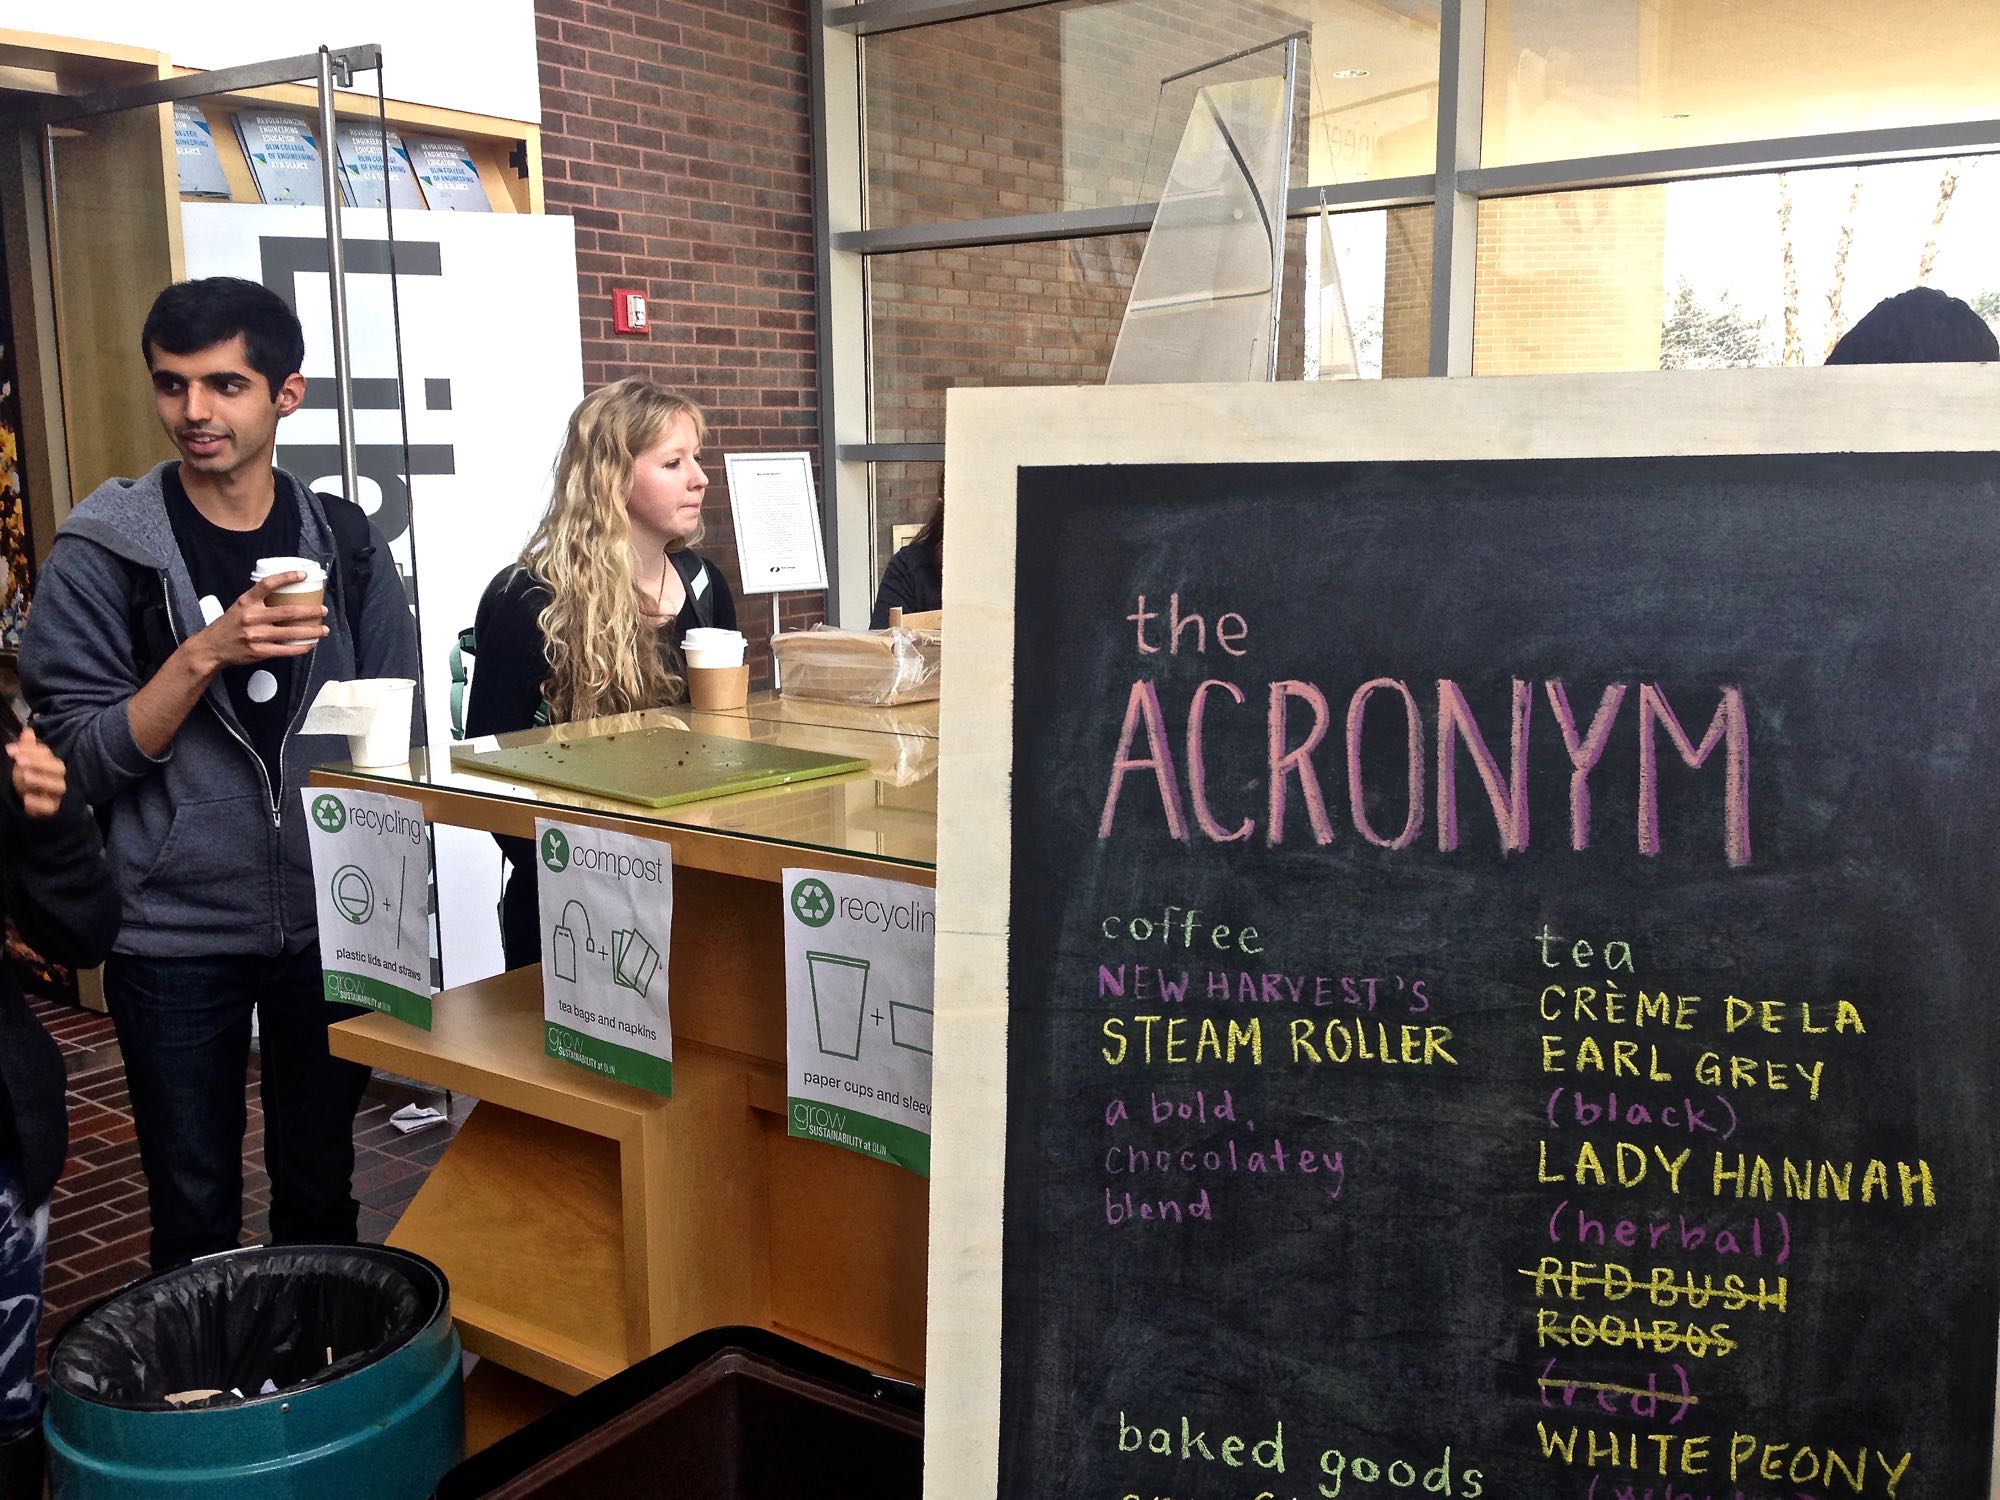 REVOLUTIONIZING
ENGINEERING
EDUCATION
OLIN COLLEGE
OF ENGINEERING
AT A GLANCE
REVOLUTIONIZING
ENGINEERING
EDUCATION
OLIN COLLEGE
OF ENGINEERING
AT A GLANCE
REVOLUTIONIZING
ENGINEERING
EDUCATION
OLIN COLLEGE
OF ENGINEERING
AT A GLANCE
recycling
+
plastic lids and straws
grow
SUSTAINABILITY at OLIN
compost
+
tea bags and napkins
grow
SUSTAINABILITY at OLIN
recyclin
+
paper cups and sleev
grow
SUSTAINABILITY at OLIN
the
ACRONYM
coffee
NEW HARVEST'S
STEAM ROLLER
a bold,
chocolatey
blend
baked goods
tea
CRÈME DE LA
EARL GREY
(black)
LADY HANNAH
(herbal)
RED BUSH
ROOIBOS
(red)
WHITE PEONY